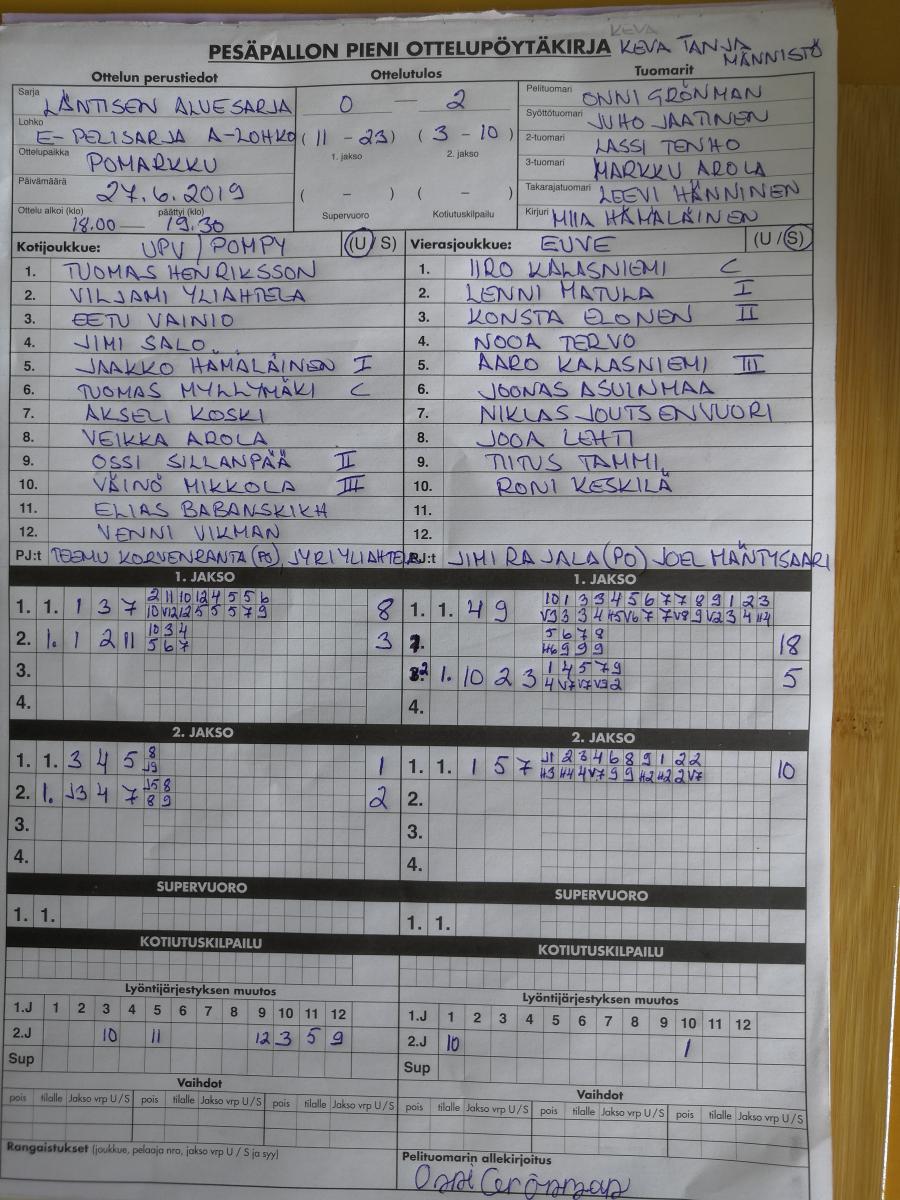 KEVA
PESÄPALLON PIENI OTTELUPÖYTÄKIRJA KEVA TANJA MÄNNISTÖ
Ottelun perustiedot Ottelutulos Tuomarit
Sarja LÄNTISEN ALUESARJA 0 — 2 Pelituomari ONNI GRÖNMAN
Syöttötuomari JUHO JAATINEN
Lohko E-PELISARJA A-LOHKO (11 - 23) (3 - 10) 2-tuomari LASSI TENHO
1. jakso 2. jakso
Ottelupaikka POMARKKU 3-tuomari MARKKU AROLA
Päivämäärä 27.6.2019 ( - ) ( - ) Takarajatuomari LEEVI HÄNNINEN
Ottelu alkoi (klo) päättyi (klo) Supervuoro Kotiutuskilpailu Kirjuri MIIA HÄMÄLÄINEN
18.00 — 19.30
Kotijoukkue: UPV / POMPY (U / S) Vierasjoukkue: EUVE (U / S)
1. TUOMAS HENRIKSSON 1. IIRO KALASNIEMI C
2. VILJAMI YLIAHTELA 2. LENNI MATULA I
3. EETU VAINIO 3. KONSTA ELONEN II
4. JIMI SALO 4. NOOA TERVO
5. JAAKKO HÄMÄLÄINEN I 5. AARO KALASNIEMI III
6. TUOMAS MYLLYMÄKI C 6. JOONAS ASUINMAA
7. AKSELI KOSKI 7. NIKLAS JOUTSENVUORI
8. VEIKKA AROLA 8. JOOA LEHTI
9. OSSI SILLANPÄÄ II 9. TIITUS TAMMI
10. VÄINÖ MIKKOLA III 10. RONI KESKILÄ
11. ELIAS BABANSKIKH 11.
12. VENNI VIKMAN 12.
PJ:t TEEMU KORVENRANTA (PO), JYRI YLIAHTELA PJ:t JIMI RAJALA (PO) JOEL MÄNTYSAARI
1. JAKSO 1. JAKSO
1. 1. 1 3 7 2 11 10 12 4 5 5 6 8 1. 1. 4 9 10 1 3 3 4 5 6 7 7 8 9 1 2 3
10 V12 12 5 5 5 7 9 V9 3 3 4 H5 V6 7 7 V8 9 V2 3 4 H4
2. 1. 1 2 11 10 3 4 3 5 6 7 8 18
5 6 7 H6 9 9 9
3. 2 1. 10 2 3 1 4 5 7 9 5
4 V7 V7 V9 2
4. 4.
2. JAKSO 2. JAKSO
1. 1. 3 4 5 8 1 1. 1. 1 5 7 J1 2 3 4 6 8 9 1 2 2 10
J9 H3 H4 4 V7 9 9 H2 H2 2 V7
2. 1. J3 4 7 J5 8 2 2.
8 9
3. 3.
4. 4.
SUPERVUORO SUPERVUORO
1. 1. 1. 1.
KOTIUTUSKILPAILU KOTIUTUSKILPAILU
Lyöntijärjestyksen muutos Lyöntijärjestyksen muutos
1.J 1 2 3 4 5 6 7 8 9 10 11 12 1.J 1 2 3 4 5 6 7 8 9 10 11 12
2.J 10 11 12 3 5 9 2.J 10 1
Sup Sup
Vaihdot Vaihdot
pois tilalle Jakso vrp U / S pois tilalle Jakso vrp U / S pois tilalle Jakso vrp U / S pois tilalle Jakso vrp U / S pois tilalle Jakso vrp U / S pois tilalle Jakso vrp U / S
Rangaistukset (joukkue, pelaaja nro, jakso vrp U / S ja syy) Pelituomarin allekirjoitus